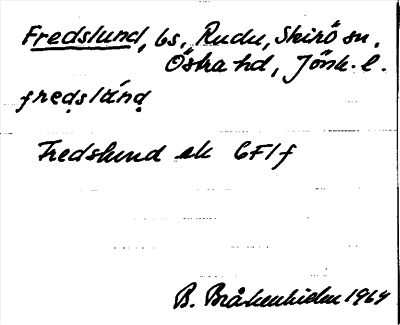 Fredslund, bs, Rudu, Skirö sn,
Östra hd, Jönk. l.
fredslánd
Fredslund ek 6F1f
B. Bråkenhielm 1964